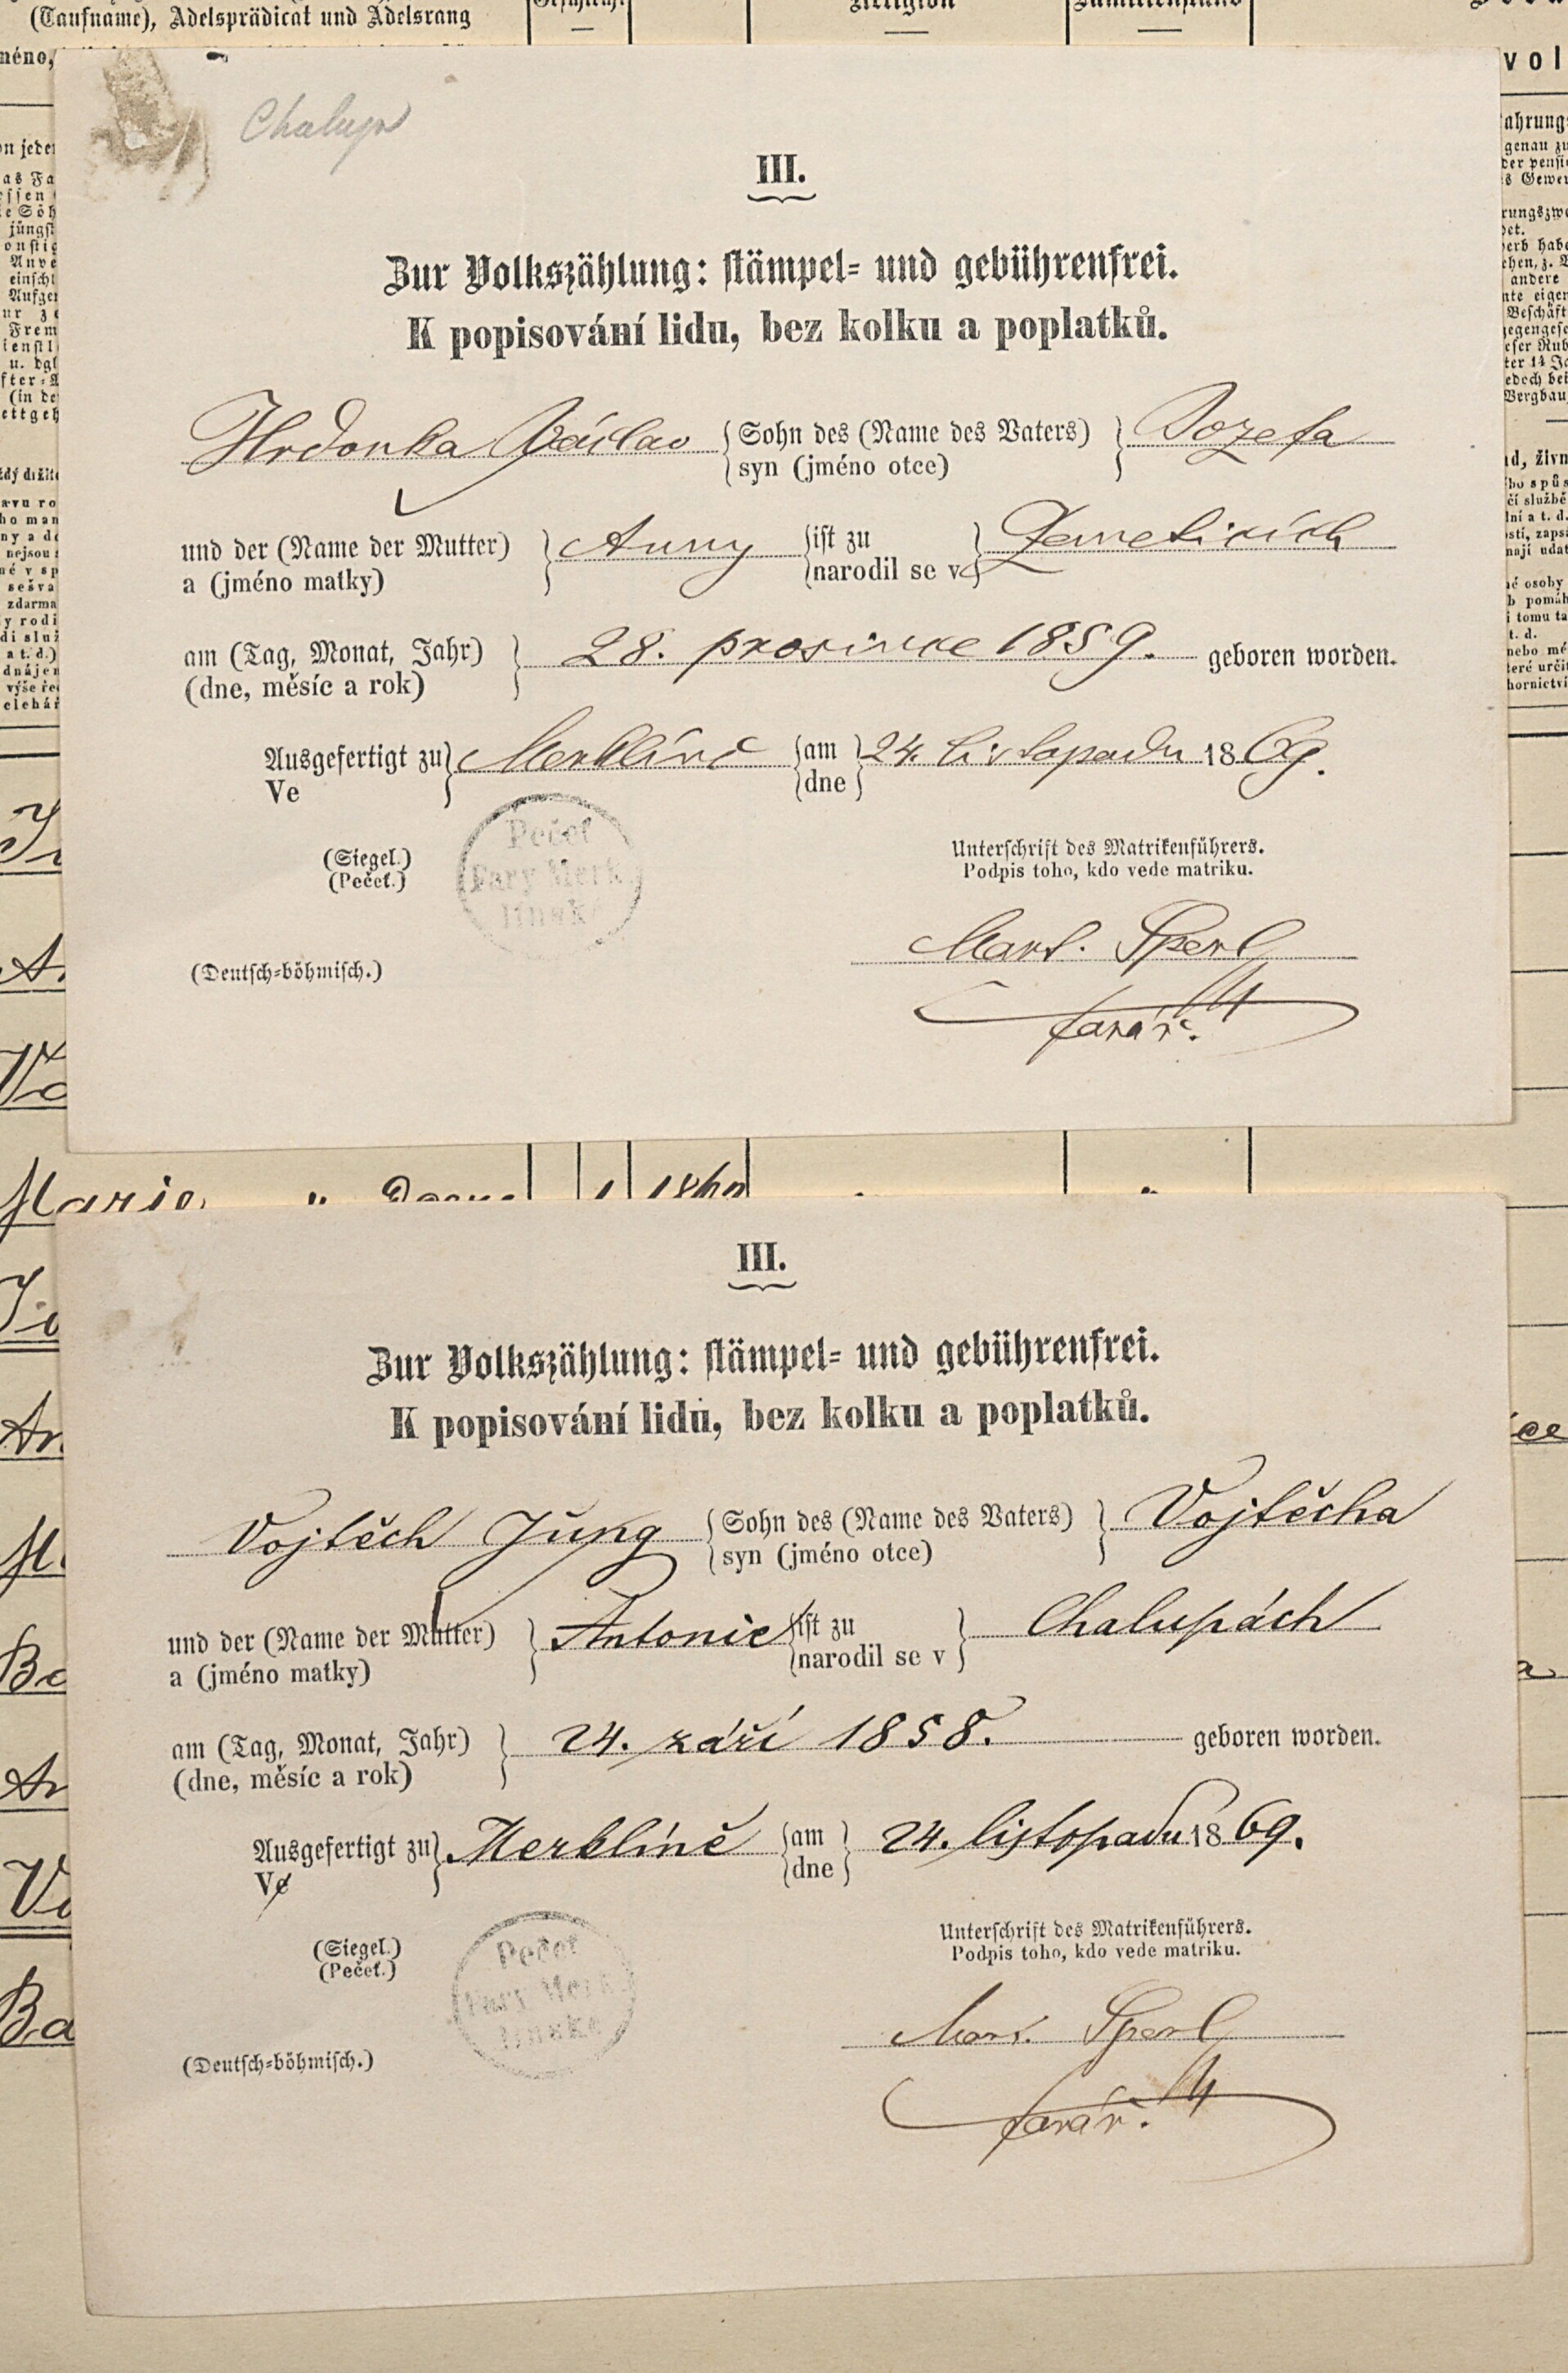 (Taufname), Adelsprädicat und Adelsrang
Chalupy
III.
Zur Volkszählung: stämpel- und gebührenfrei.
K popisování lidu, bez kolku a poplatků.
Hrdonka Václav Sohn des (Name des Vaters) Jozefa
syn (jméno otce)
und der (Name der Mutter) Anny ist zu
a (jméno matky) narodil se v
am (Tag, Monat, Jahr) 28. prosince 1859. geboren worden.
(dne, měsíc a rok)
Ausgefertigt zu Merklíně am 24. listopadu 1869.
Ve dne
(Siegel.) Pečeť Unterschrift des Matrikenführers.
(Pečeť.) Fary Merk Podpis toho, kdo vede matriku.
línské
Mart. Šperl
(Deutsch-böhmisch.)
farář.
Marie " 1860
III.
Zur Volkszählung: stämpel- und gebührenfrei.
K popisování lidu, bez kolku a poplatků.
Vojtěch Jung Sohn des (Name des Vaters) Vojtěcha
syn (jméno otce)
und der (Name der Mutter) Antonie ist zu Chalupách
a (jméno matky) narodil se v
am (Tag, Monat, Jahr) 24. září 1858. geboren worden.
(dne, měsíc a rok)
Ausgefertigt zu Merklíně am 24. listopadu 1869.
Ve dne
(Siegel.) Pečeť Unterschrift des Matrikenführers.
(Pečeť.) Fary Merk Podpis toho, kdo vede matriku.
línské
Mart. Šperl
(Deutsch-böhmisch.)
farář.